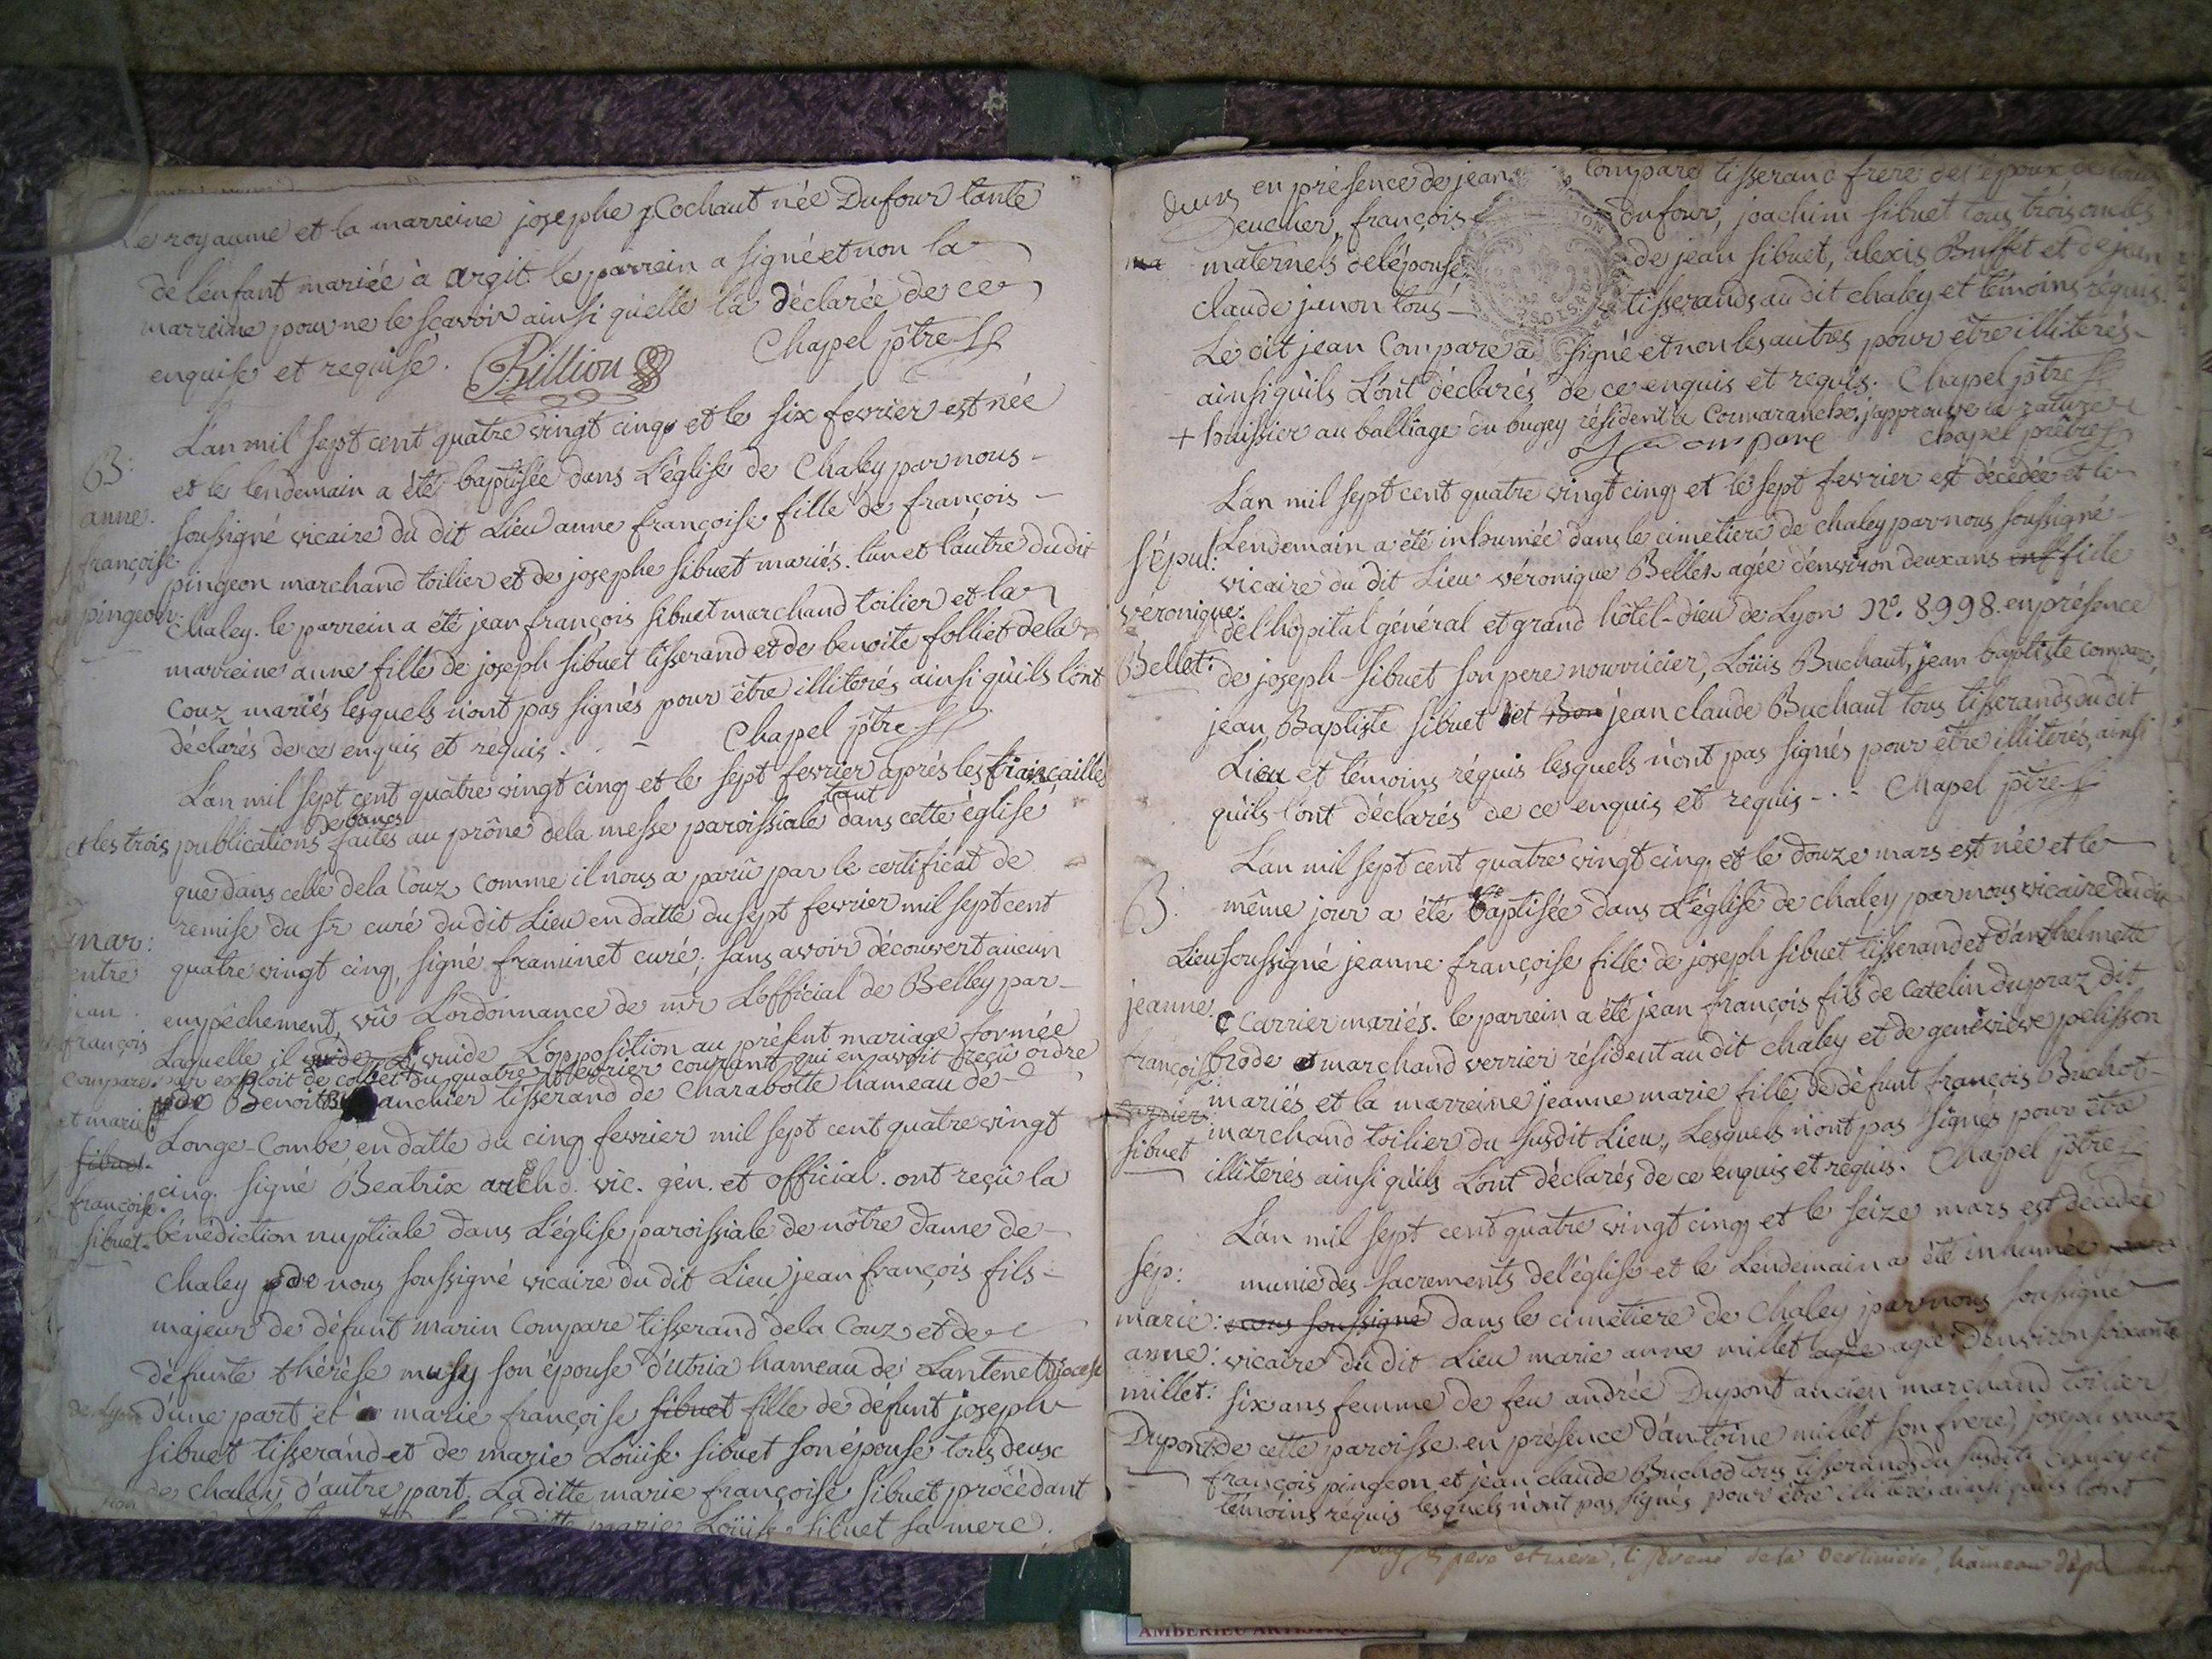 Le royaume et la marreine josephe Cochaut née Dufour tante
de l'enfant mariée à argit. le parrein a signé et non la
marreine pour ne le sçavoir ainsi qu'elle l'a déclarée de ce
enquise et requise. Billion Chapel ptre
B:
anne.
françoise
pingeon.
L'an mil sept cent quatre vingt cinq et le six fevrier est née
et le lendemain a été baptisée dans L'église de Chaley par nous
soussigné vicaire du dit Lieu anne françoise fille de françois
pingeon marchand toilier et de josephe sibuet mariés. l'un et l'autre du dit
Chaley. le parrein a été jean françois sibuet marchand toilier et la
marreine anne fille de joseph sibuet tisserand et de benoite folliet de la
Couz mariés lesquels n'ont pas signés pour être illiterés ainsi qu'ils l'ont
déclarés de ce enquis et requis. Chapel ptre
mar:
entre
jean
françois
compare
et marie
sibuet
françoise.
sibuet.
L'an mil sept cent quatre vingt cinq et le sept fevrier après les fiançailles
et les trois publications de bancs faites au prône de la messe paroissiale tant dans cette église
que dans celle de la Couz comme il nous a parû par le certificat de
remise du sr. curé du dit Lieu en datte du sept fevrier mil sept cent
quatre vingt cinq, signé framinet curé; sans avoir découvert aucun
empêchement, vû L'ordonnance de mr L'official de Belley par
Laquelle il vuide L'opposition au présent mariage formée
par exploit de collet du quatre fevrier courant qui en avoit reçu ordre
de Benoit tisserand de Charabotte hameau de
Longe-Combe en datte du cinq fevrier mil sept cent quatre vingt
cinq. signé Beatrix archd. vic. gén. et official. ont reçû la
bénédiction nuptiale dans L'église paroissiale de nôtre dame de
Chaley de nous soussigné vicaire du dit Lieu, jean françois fils
majeur de défunt marin Compare tisserand de la Couz et de
défunte thérèse musy son épouse d'utria hameau de Lantenet diocese
de Lyon d'une part et marie françoise sibuet fille de défunt joseph
sibuet tisserand et de marie Loüise sibuet son épouse tous deux
de chaley d'autre part. La ditte marie françoise sibuet procédant
ditte marie Loüise sibuet sa mere.
en présence de jean Compare tisserand frere de l'époux de
françois dufour, joachim sibuet tous trois oncles
maternels de l'épouse de jean sibuet, alexis Buffet et de jean
claude janon tous tisserands au dit chaley et témoins réquis.
Le dit jean Compare a signé et non les autres pour être illiterés
ainsi qu'ils L'ont déclarés de ce enquis et requis. Chapel ptre
+ huissier au balliage du bugey résident à Cormaranche, j'approuve la rature
Compare chapel prêtre
Sépul:
véronique.
Bellet.
L'an mil sept cent quatre vingt cinq et le sept fevrier est décédée et le
Lendemain a été inhumée dans le cimetiere de chaley par nous soussigné
vicaire du dit Lieu véronique Bellet agée d'environ deux ans fide
de l'hôpital général et grand hôtel-dieu de Lyon N°. 8998. en présence
de joseph sibuet son pere nourricier, Loüis Buchaut, jean baptiste compare,
jean Baptiste sibuet et Bon jean claude Buchaut tous tisserands du dit
Lieu et témoins réquis lesquels n'ont pas signés pour être illiterés, ainsi
qu'ils l'ont déclarés de ce enquis et requis - Chapel ptre
B:
jeanne.
françoise
sibuet
L'an mil sept cent quatre vingt cinq, et le douze mars est née et le
même jour a été baptisée dans L'église de chaley par nous vicaire du dit
Lieu soussigné jeanne françoise fille de joseph sibuet tisserand et d'anthelmette
Carrier mariés. le parrein a été jean françois fils de Catelin dupraz dit
brode marchand verrier résident au dit chaley et de genéviève pelisson
mariés et la marreine jeanne marie fille de défunt françois Buchot
marchand toilier du susdit Lieu, Lesquels n'ont pas signés pour être
illiterés ainsi qu'ils L'ont déclarés de ce enquis et requis. Chapel ptre
sép:
marie:
anne:
millet:
Dupont
L'an mil sept cent quatre vingt cinq et le seize mars est décédée
munie des sacrements de l'église et le Lendemain a été inhumée
nous soussigné dans le cimétiere de Chaley par nous soussigné
vicaire du dit Lieu marie anne millet agée d'environ soixante
six ans femme de feu andrée Dupont ancien marchand toilier
de cette paroisse. en présence d'antoine millet son frere, joseph
françois pingeon et jean claude Buchod tous tisserands du susdit Chaley et
témoins réquis lesquels n'ont pas signés pour être illiterés ainsi qu'ils l'ont
pere et mère, tisserand de la hameau
AMBERIEU